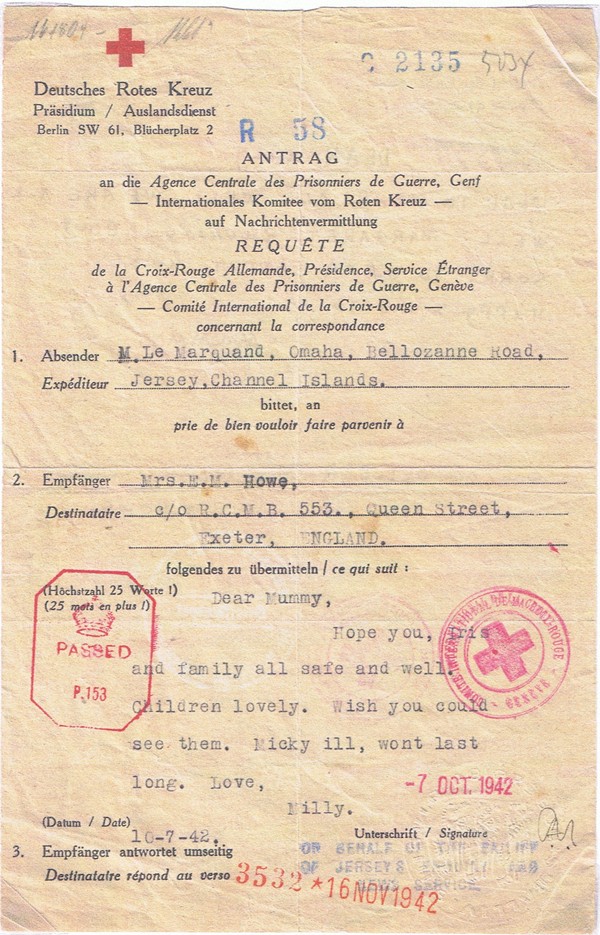 C 2135 5034
Deutsches Rotes Kreuz
Präsidium / Auslandsdienst
Berlin SW 61, Blücherplatz 2
R 58
ANTRAG
an die Agence Centrale des Prisonniers de Guerre, Genf
— Internationales Komitee vom Roten Kreuz —
auf Nachrichtenvermittlung
REQUÊTE
de la Croix-Rouge Allemande, Présidence, Service Étranger
à l'Agence Centrale des Prisonniers de Guerre, Genève
— Comité International de la Croix-Rouge —
concernant la correspondance
1. Absender M. Le Marquand, Omaha, Bellozanne Road,
Expéditeur Jersey, Channel Islands.
bittet, an
prie de bien vouloir faire parvenir à
2. Empfänger Mrs.E.M. Howe,
Destinataire c/o R.C.M.B. 553., Queen Street,
Exeter, ENGLAND.
folgendes zu übermitteln / ce qui suit :
(Höchstzahl 25 Worte !)
(25 mots en plus !)
Dear Mummy,
Hope you, Iris
and family all safe and well.
Children lovely. Wish you could
see them. Micky ill, wont last
long. Love,
Milly.
PASSED
P.153
COMITÉ INTERNATIONAL DE LA CROIX-ROUGE
GENÈVE
-7 OCT. 1942
(Datum / Date)
10-7-42.
Unterschrift / Signature
3. Empfänger antwortet umseitig
Destinataire répond au verso
ON BEHALF OF THE BAILIFF
OF JERSEY'S ENQUIRY AND
NEWS SERVICE.
3532 * 16 NOV 1942